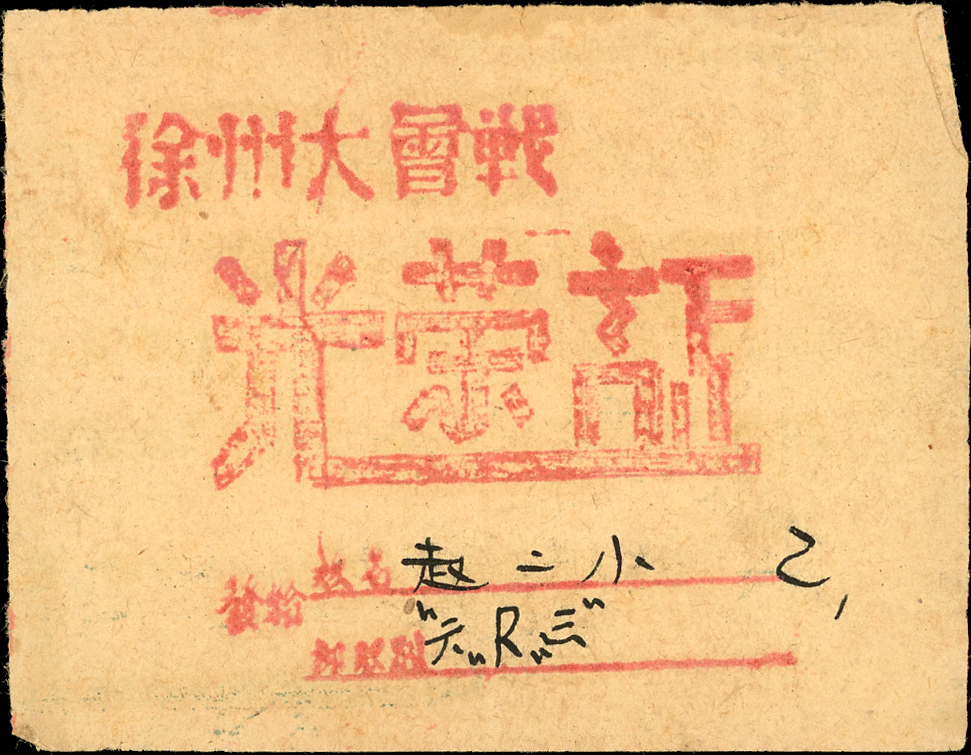 徐州大會战
光荣証
發給
姓名 赵二小 乙,
部队别 "六"R"三"